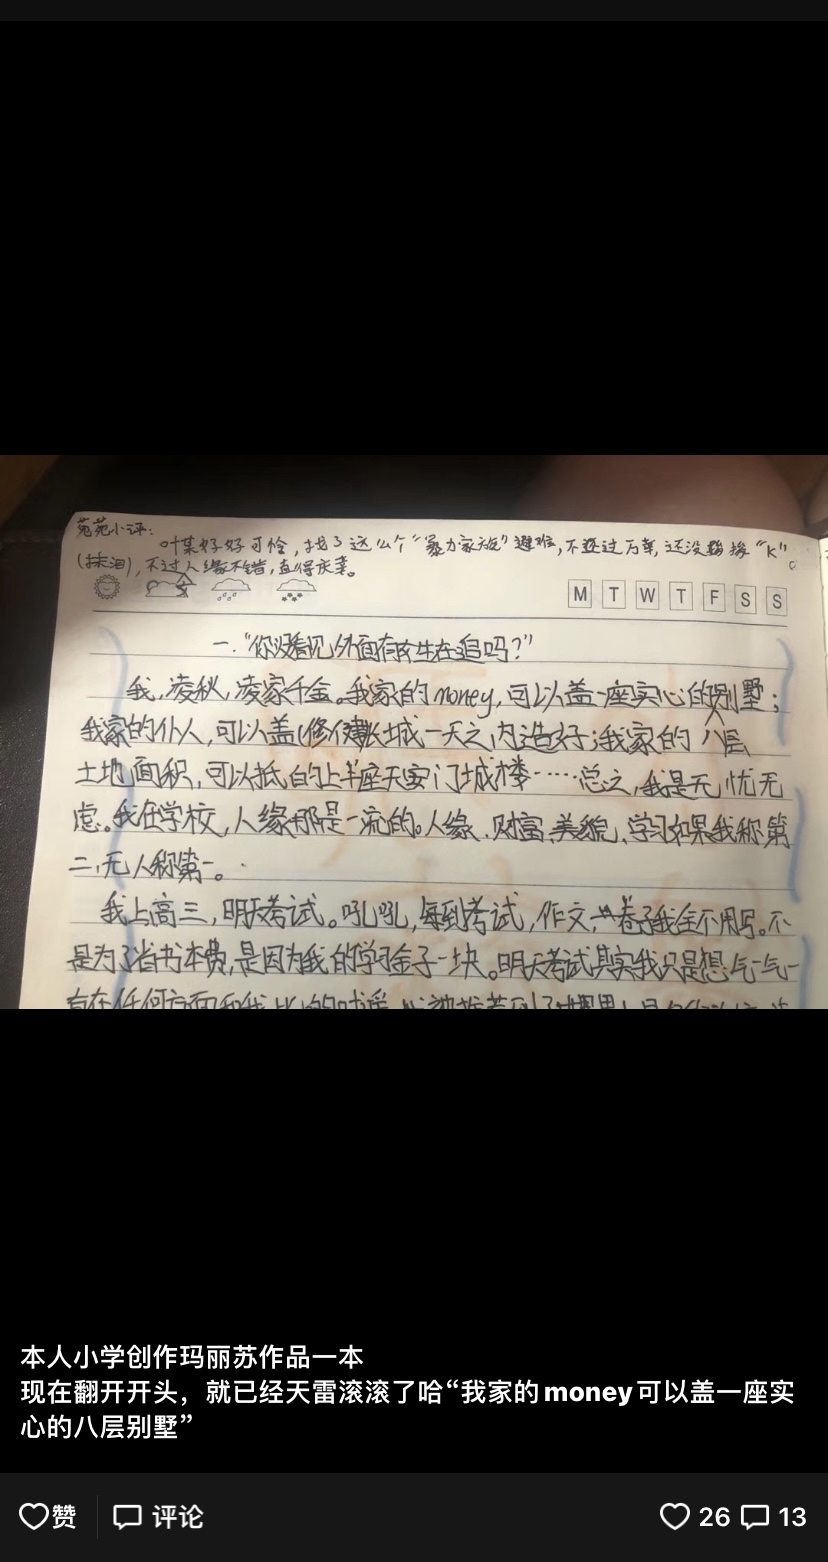 苑苑小评:
叶某好好可怜,找了这么个“暴力家族”避难,不
(抹泪),不过人缘不错,直得庆幸。
M T W T F S S
一.“你没看见外面有女生在追吗?”
我,凌秋,凌家千金。我家的money,可以盖一座实心的八层别墅;
我家的仆人,可以 修建长城一天之内造好;我家的
土地面积,可以抵的上半座天安门城楼……总之,我是无忧无
虑。我在学校,人缘那是一流的。人缘、财富、美貌、学习如果我称第
二,无人称第一。
我上高三,明天考试。吼吼,每到考试,作文, 卷子我全不用写。不
是为了省书本费,是因为我的学习金子一块。明天考试其实我只是想气一气一
本人小学创作玛丽苏作品一本
现在翻开开头，就已经天雷滚滚了哈“我家的money可以盖一座实
心的八层别墅”
赞 评论 26 13